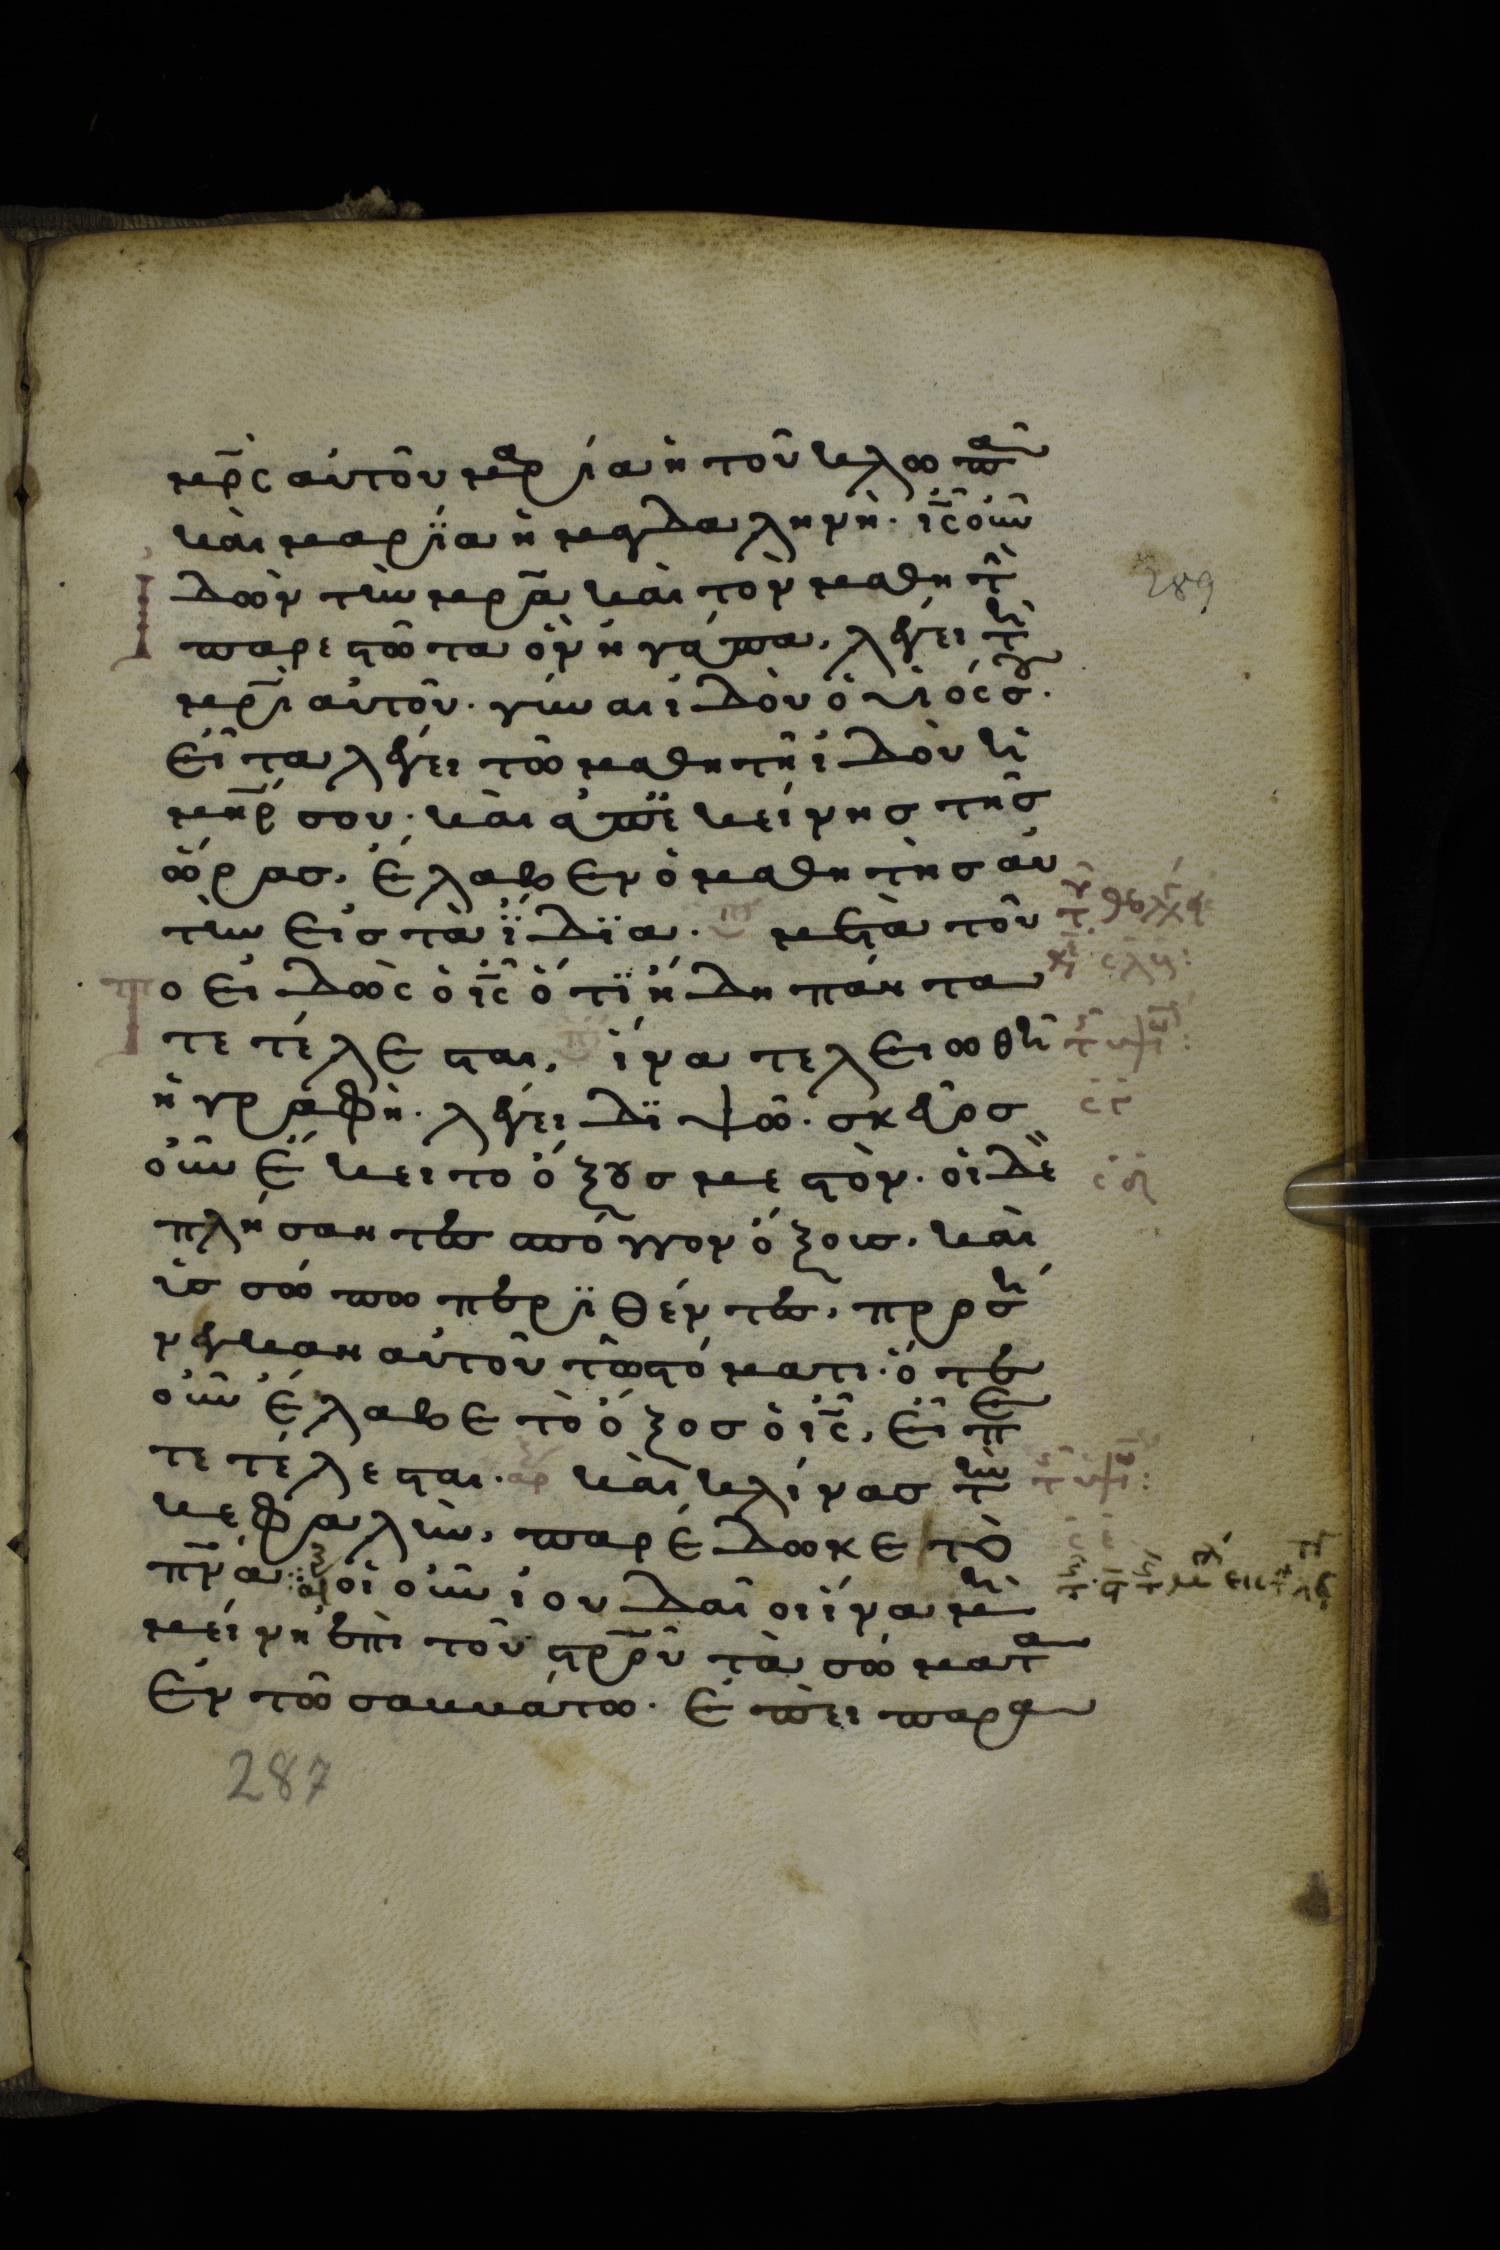 μρ̅ς αὐτοῦ μαρία ἡ τοῦ κλωπᾶ
καὶ μαρία ἡ μαγδαληνή· ις̅ οὖν
ἰδὼν τὴν μρ̅α καὶ τὸν μαθητὴν
289
παρεστῶτα ὃν ἠγάπα, λέγει τῆ
μρ̅ι αὐτοῦ· γύναι ἰδοὺ ὁ υἱός σου·
εἶτα λέγει τῶ μαθητῆ ἰδοὺ ἡ
μηρ̅ σου· καὶ ἀπ' ἐκείνης τῆς
ὥρας, ἔλαβεν ὁ μαθητὴς αὐ
τὴν εἰς τὰ ἴδια· μετὰ τοῦ
το εἰδὼς ὁ ις̅ ὅτι ἤδη πάντα
τετέλεσται, ἵνα τελειωθῆ
ἡ γραφή· λέγει διψῶ· σκεῦος
οὖν ἔκειτο ὄξους μεστόν· οἱ δὲ
πλήσαντες σπόγγον ὄξους, καὶ
ὑσσώπω περιθέντες, προσή
νεγκαν αὐτοῦ τῶ στόματι· ὅτε
οὖν ἔλαβε τὸ ὄξος ὁ ις̅, εἶπε
τετέλεσται· καὶ κλίνας τὴν
κεφαλήν, παρέδωκε τὸ
πν̅α· οἱ οὖν ἰουδαῖοι ἵνα μὴ
μείνη ἐπὶ τοῦ στρ̅οῦ τὰ σώματα
ἐν τῶ σαββάτω· ἐπεὶ παρα
287